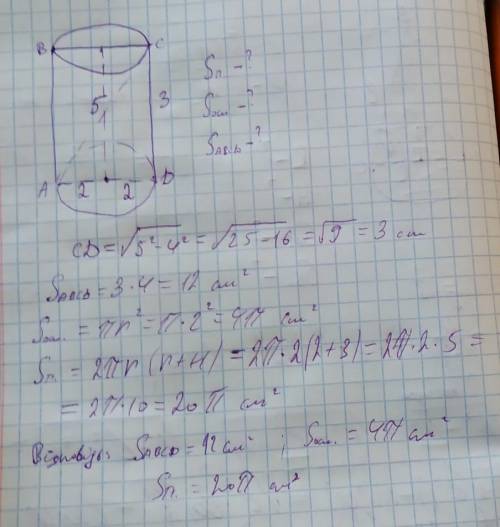 B C
Sп - ?
5 3
Sосн - ?
SABCD - ?
A 2 2 D
CD = √5² - 4² = √25 - 16 = √9 = 3 см
SABCD = 3 · 4 = 12 см²
Sосн. = πr² = π · 2² = 4π см²
Sп. = 2πr (r + H) = 2π · 2(2 + 3) = 2π · 2 · 5 =
= 2π · 10 = 20π см²
Відповідь: SABCD = 12 см² ; Sосн. = 4π см²
Sп. = 20π см²